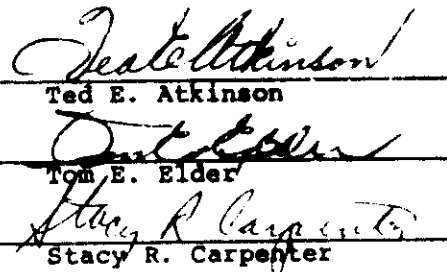 Ted E Atkinson
Ted E. Atkinson
Tom E. Elder
Tom E. Elder
Stacy R Carpenter
Stacy R. Carpenter